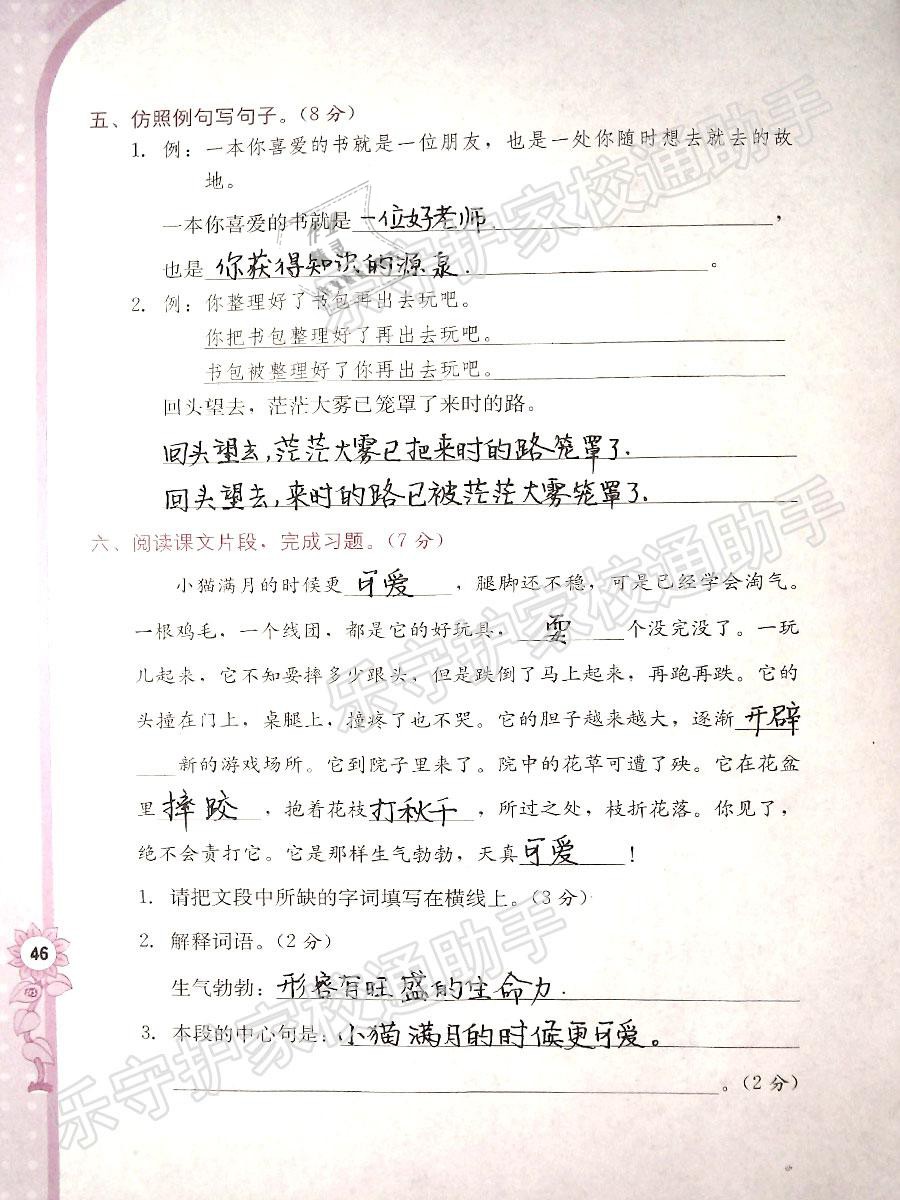 五、仿照例句写句子。（8 分）
1. 例：一本你喜爱的书就是一位朋友，也是一处你随时想去就去的故
地。
一本你喜爱的书就是一位好老师.，
也是你获得知识的源泉.。
2. 例：你整理好了书包再出去玩吧。
你把书包整理好了再出去玩吧。
书包被整理好了你再出去玩吧。
回头望去，茫茫大雾已笼罩了来时的路。
回头望去,茫茫大雾已把来时的路笼罩了.
回头望去,来时的路已被茫茫大雾笼罩了.
六、阅读课文片段，完成习题。（7 分）
小猫满月的时候更可爱，腿脚还不稳，可是已经学会淘气。
一根鸡毛，一个线团，都是它的好玩具，耍个没完没了。一玩
儿起来，它不知要摔多少跟头，但是跌倒了马上起来，再跑再跌。它的
头撞在门上，桌腿上，撞疼了也不哭。它的胆子越来越大，逐渐开辟
新的游戏场所。它到院子里来了。院中的花草可遭了殃。它在花盆
里摔跤，抱着花枝打秋千，所过之处，枝折花落。你见了，
绝不会责打它。它是那样生气勃勃，天真可爱！
1. 请把文段中所缺的字词填写在横线上。（3 分）
2. 解释词语。（2 分）
生气勃勃：形容有旺盛的生命力.
3. 本段的中心句是：小猫满月的时候更可爱。
。（2 分）
46
乐守护家校通助手
乐守护家校通助手
乐守护家校通助手